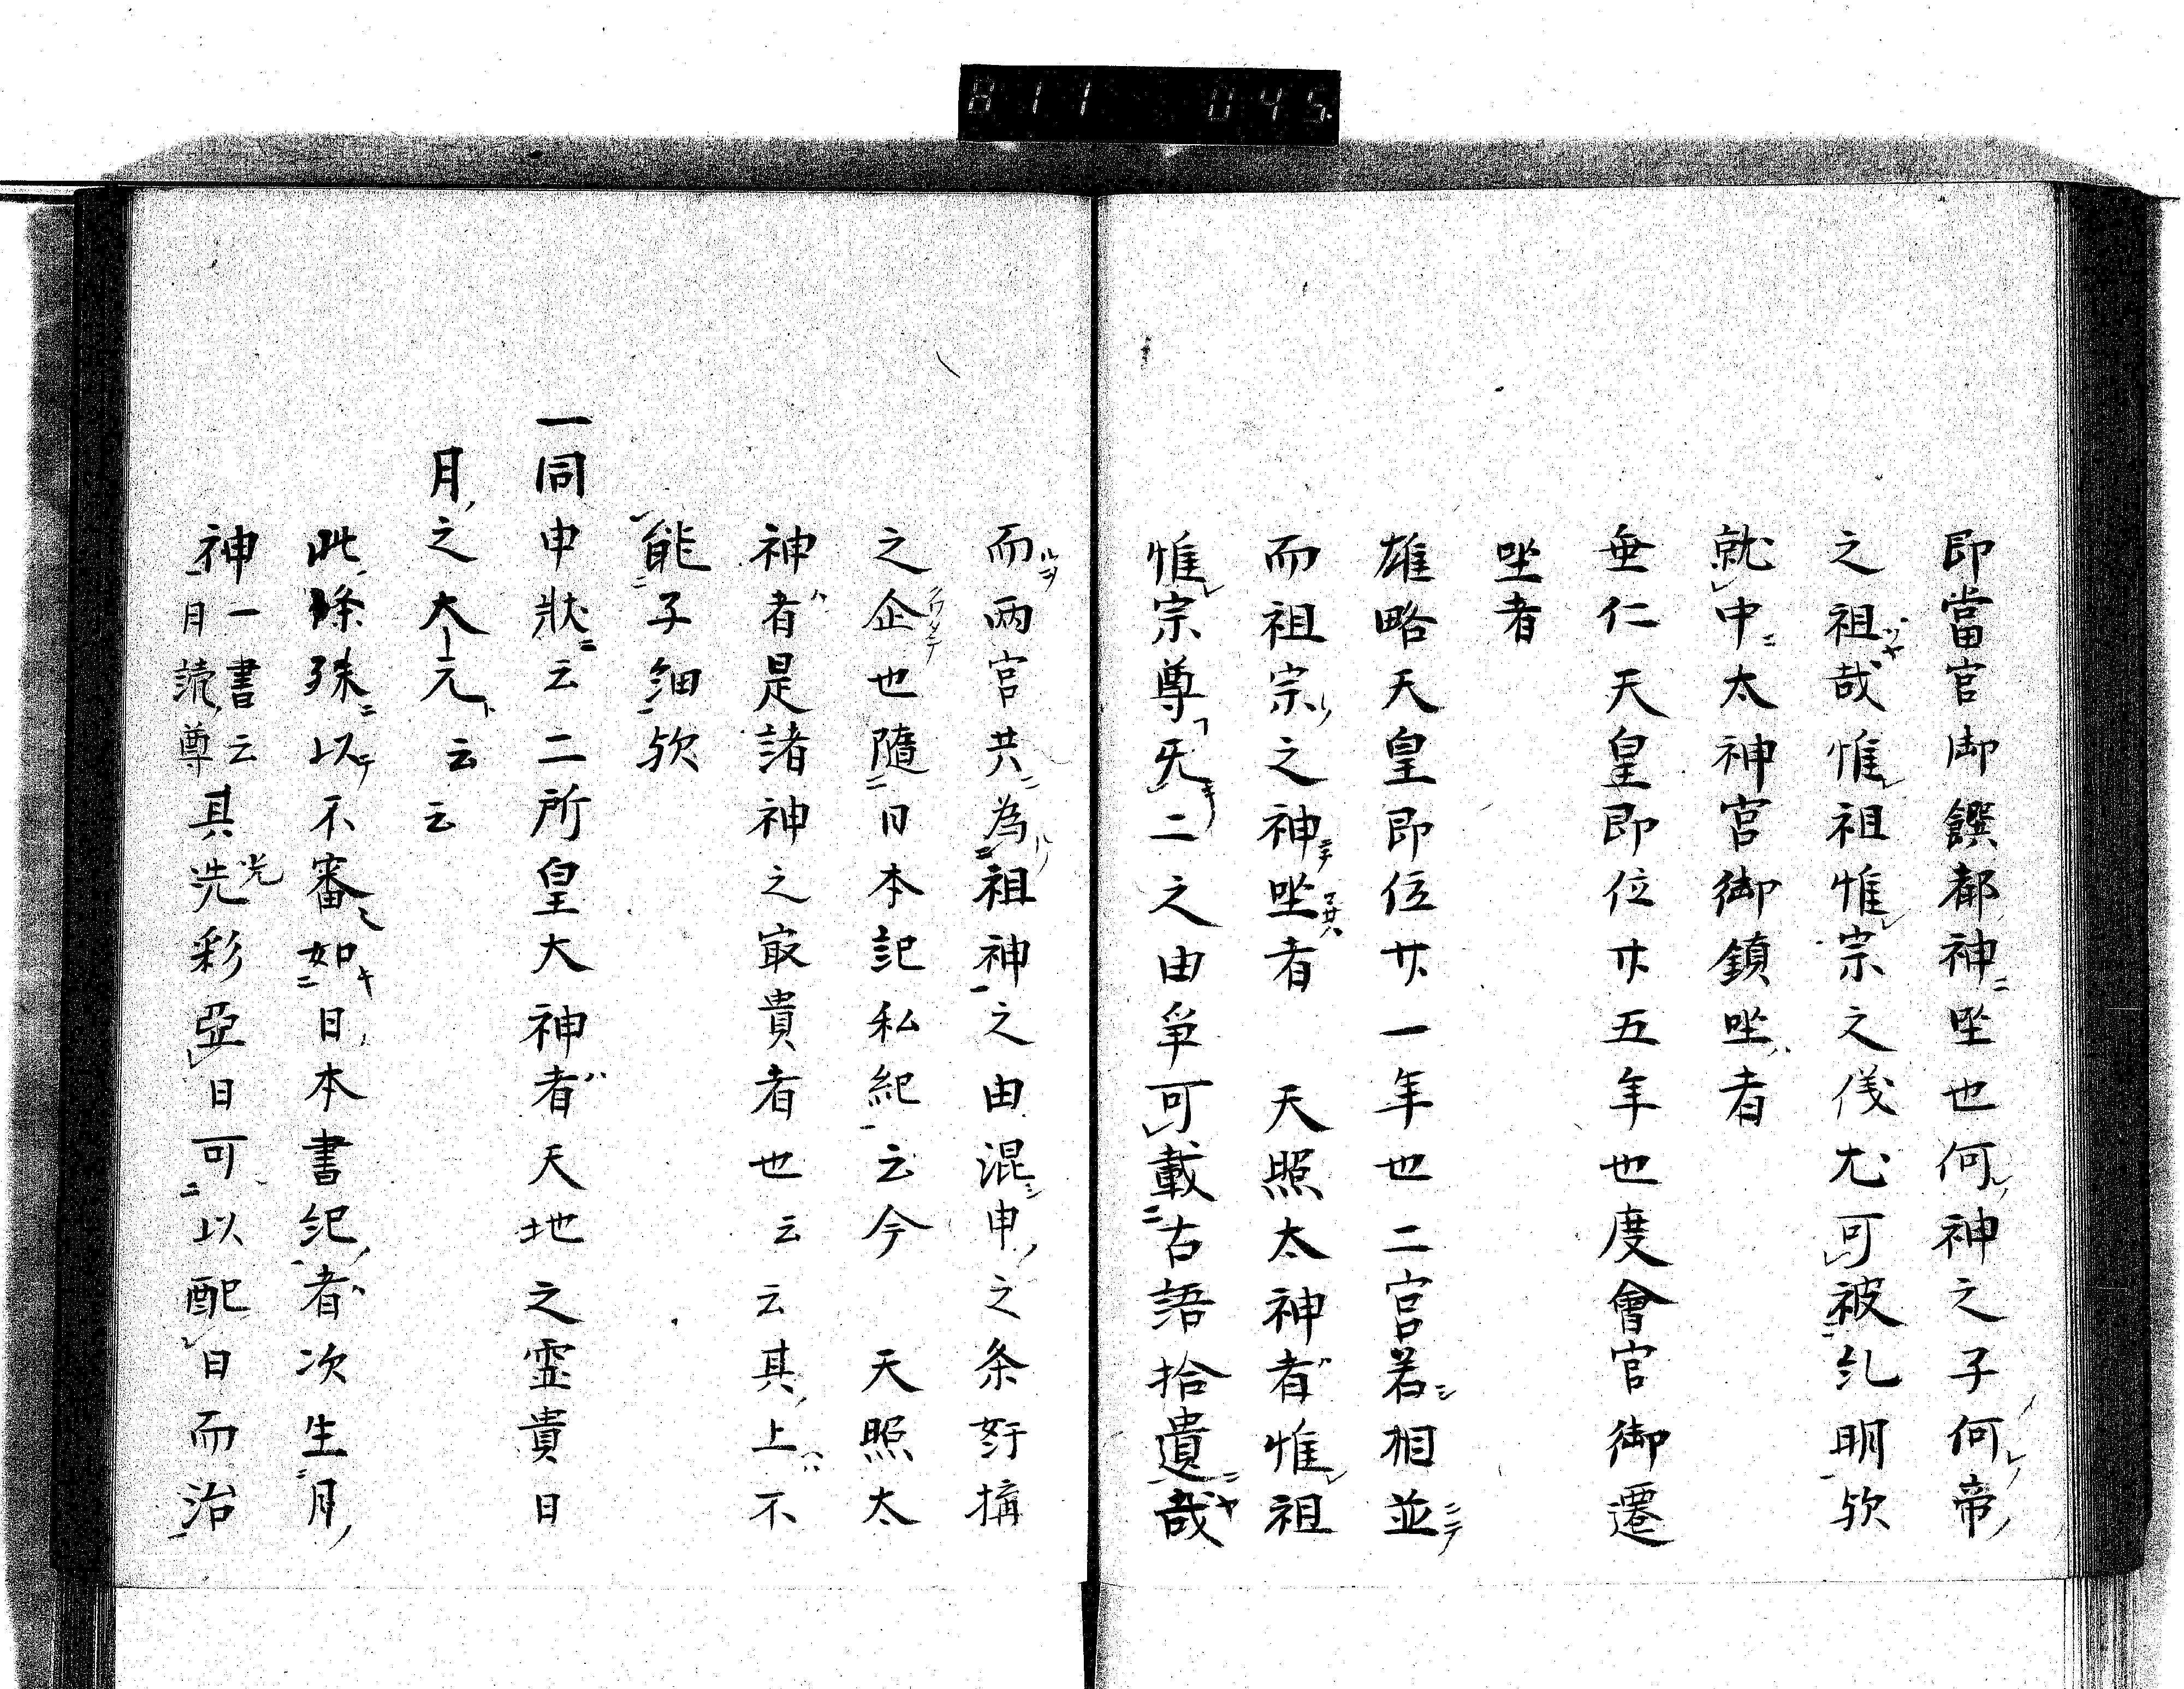 811 045
即當官御饌都神坐也何神之子何帝
之祖哉惟祖惟宗之儀尤可被糺明欤
就中太神宮御鎮坐者
垂仁天皇即位廿五年也度會官御遷
坐者
雄略天皇即位廿一年也二宮若相並
而祖宗之神坐者　天照太神者惟祖
惟宗尊旡二之由争可載古語拾遺哉
而兩官共為祖神之由混申之条姧搆
之企也隨日本記私紀云今　天照太
神者是諸神之㝡貴者也云云其上不
能子細欤
一同申狀云二所皇大神者天地之霊貴日
月之大元云云
此條殊以不審如日本書紀者次生月
神一書云月読尊其光彩亞日可以配日而治